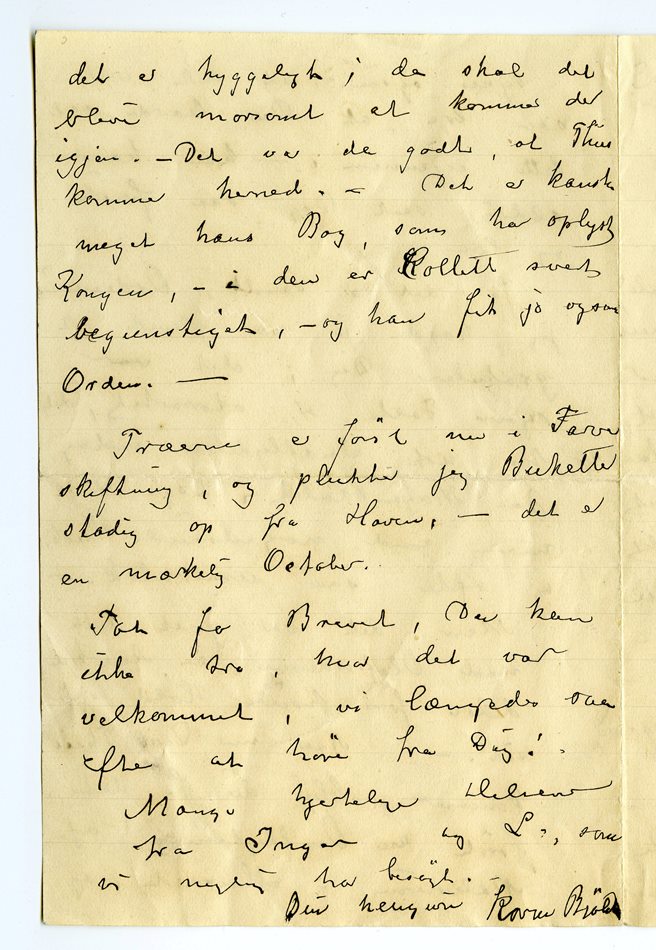 det er hyggeligt; da skal det
blive morsomt at komme der
igjen. – Det var da godt, at Thiis
komme herned. – Det er kanske
meget hans Bog, som har oplyst
Kongen, – i den er Kollett svært
begunstiget, – og han fik jo ogsaa
Orden. —
Træerne er først nu i Farve
skiftning, og plukker jeg Buketter
stadig op fra Haven, — det er
en mærkelig October.
Tak for Brevet, Du kan
ikke tro, hvor det var
velkomment, vi længtedes saa
efter at høre fra Dig! –
Mange hjertelige Hilsener
fra Inger og L., som
vi nylig har besøgt. –
Din hengivne Karen Bjöl